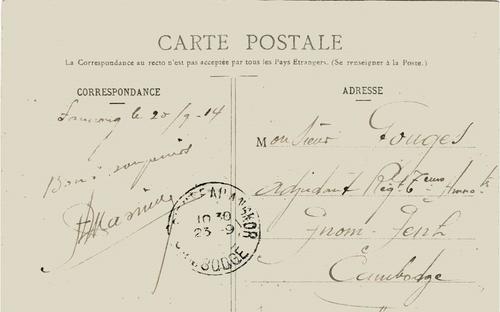 CARTE POSTALE
La Correspondance au recto n'est pas acceptée par tous les Pays Étrangers. (Se renseigner à la Poste.)
CORRESPONDANCE
le 20/9-14
Bons souvenirs
ADRESSE
Monsieur Fouges
adjudant Régt
Pnom-Penh
Cambodge
10 30
23-9
CAMBODGE